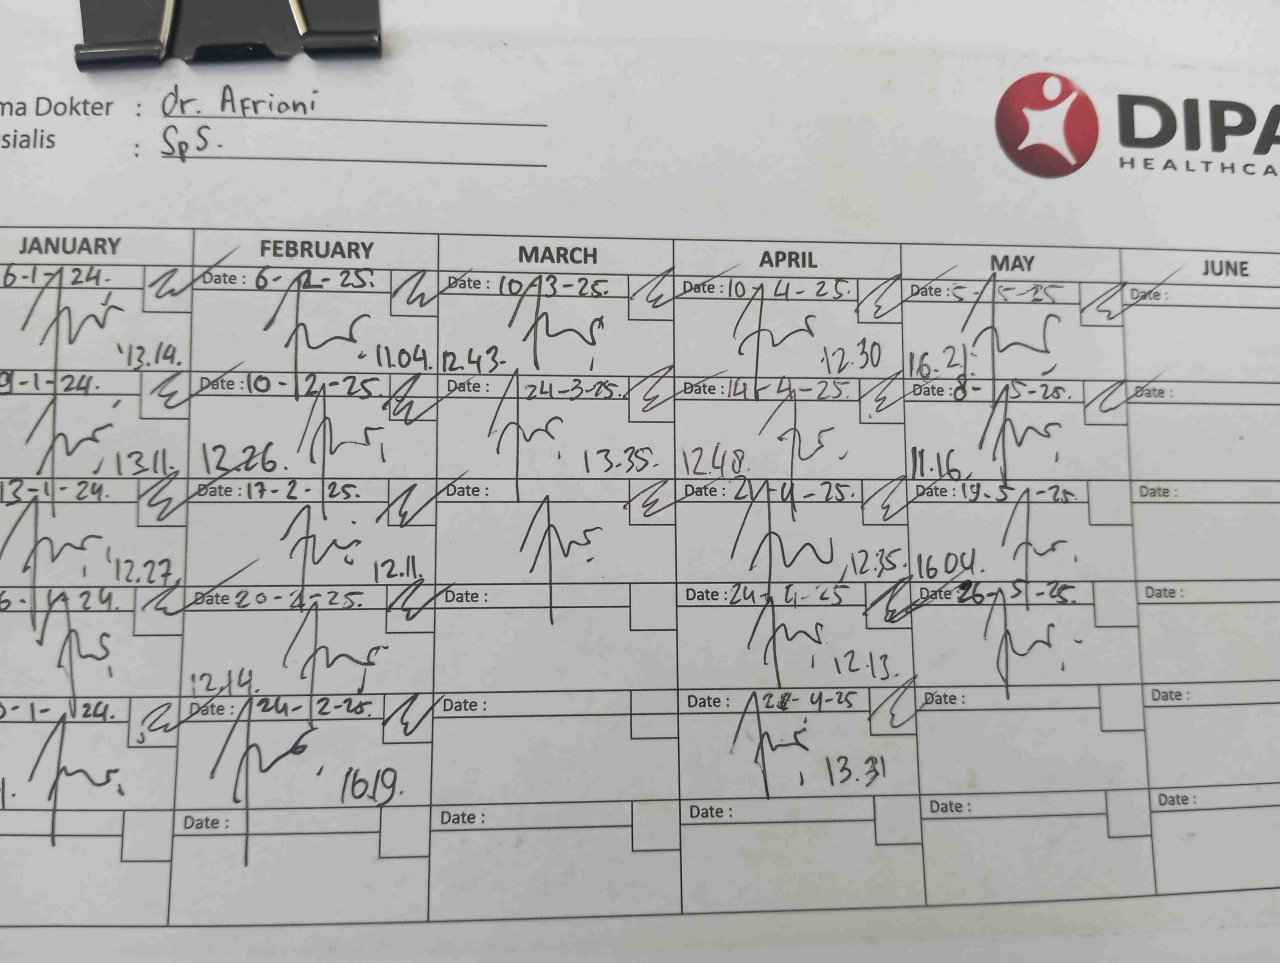 ma Dokter : dr. Afriani
sialis : SpS.
DIPA
HEALTHCA
JANUARY FEBRUARY MARCH APRIL MAY JUNE
6-1-24. Date : 6-2-25. Date : 10-3-25. Date : 10-4-25. Date : 5-5-25 Date :
13.14. 11.04. 12.43. 12.30 16.21.
9-1-24. Date : 10-2-25. Date : 24-3-25. Date : 14-4-25. Date : 8-5-25. Date :
13.11. 12.26. 13.35. 12.48. 11.16.
13-1-24. Date : 17-2-25. Date : Date : 21-4-25. Date : 19-5-25. Date :
12.27. 12.11. 12.35. 16.04.
24. Date 20-2-25. Date : Date : 24-4-25 Date : 26-5-25. Date :
12.14. 12.13.
-1-24. Date : 24-2-25. Date : Date : 28-4-25 Date : Date :
16.19. 13.31
Date : Date : Date : Date : Date :